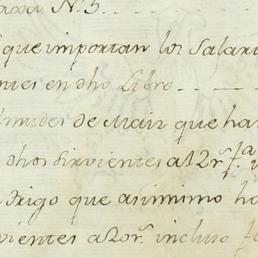 N.º 5.
que importan los Salari
ntes en dho Libro
lmudes de Maiz que ha
dhos Sirvientes a 12 r.^s
Trigo que asimimo ha
vientes a 20 r.^s incluso